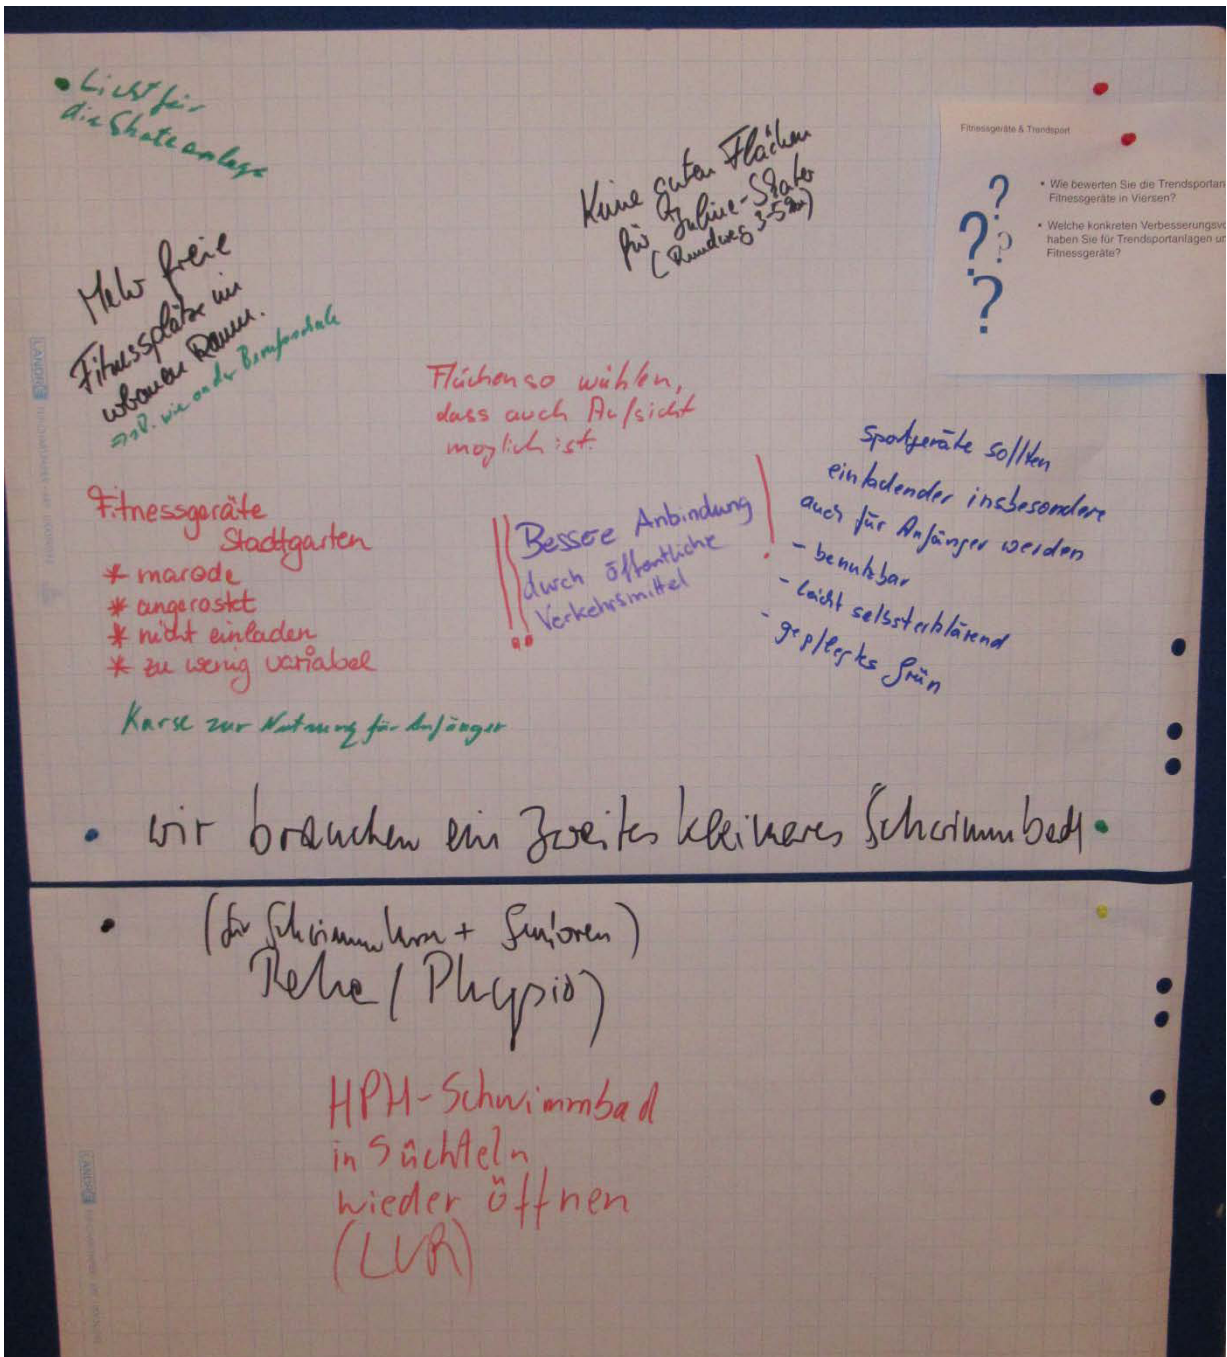 • Licht für
die Skateanlage
Keine guten Flächen
für Inline-Skater
(Rundweg 3-5 km)
Fitnessgeräte & Trendsport
• Wie bewerten Sie die Trendsportan
Fitnessgeräte in Viersen?
• Welche konkreten Verbesserungsvo
haben Sie für Trendsportanlagen un
Fitnessgeräte?
? ? ? ?
Mehr freie
Fitnessplätze im
urbanen Raum.
=> z.B. wie an der Berufsschule
LANDRÉ
Flächen so wählen,
dass auch Aufsicht
möglich ist.
Fitnessgeräte
Stadtgarten
* marode
* angerostet
* nicht einladen
* zu wenig variabel
!! Bessere Anbindung !
durch öffentliche
Verkehrsmittel
Sportgeräte sollten
einladender insbesondere
auch für Anfänger werden
- benutzbar
- leicht selbsterklärend
- gepflegtes Grün
Kurse zur Nutzung für Anfänger
• wir brauchen ein zweites kleineres Schwimmbad •
• (für Schwimmkurse + Senioren)
Reha / Physio)
HPH-Schwimmbad
in Süchteln
wieder öffnen
(LVR)
LANDRÉ